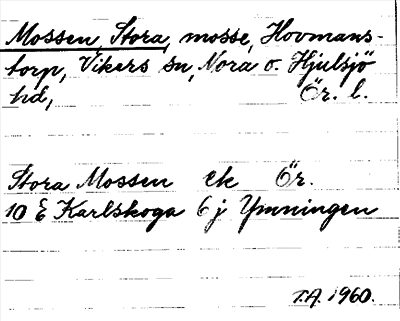 Mossen, Stora, mosse, Hovmans-
torp, Vikers sn, Nora o. Hjulsjö
hd, Ör. l.
Stora Mossen ek Ör.
10 E Karlskoga 6 j Ymningen
T.A. 1960.